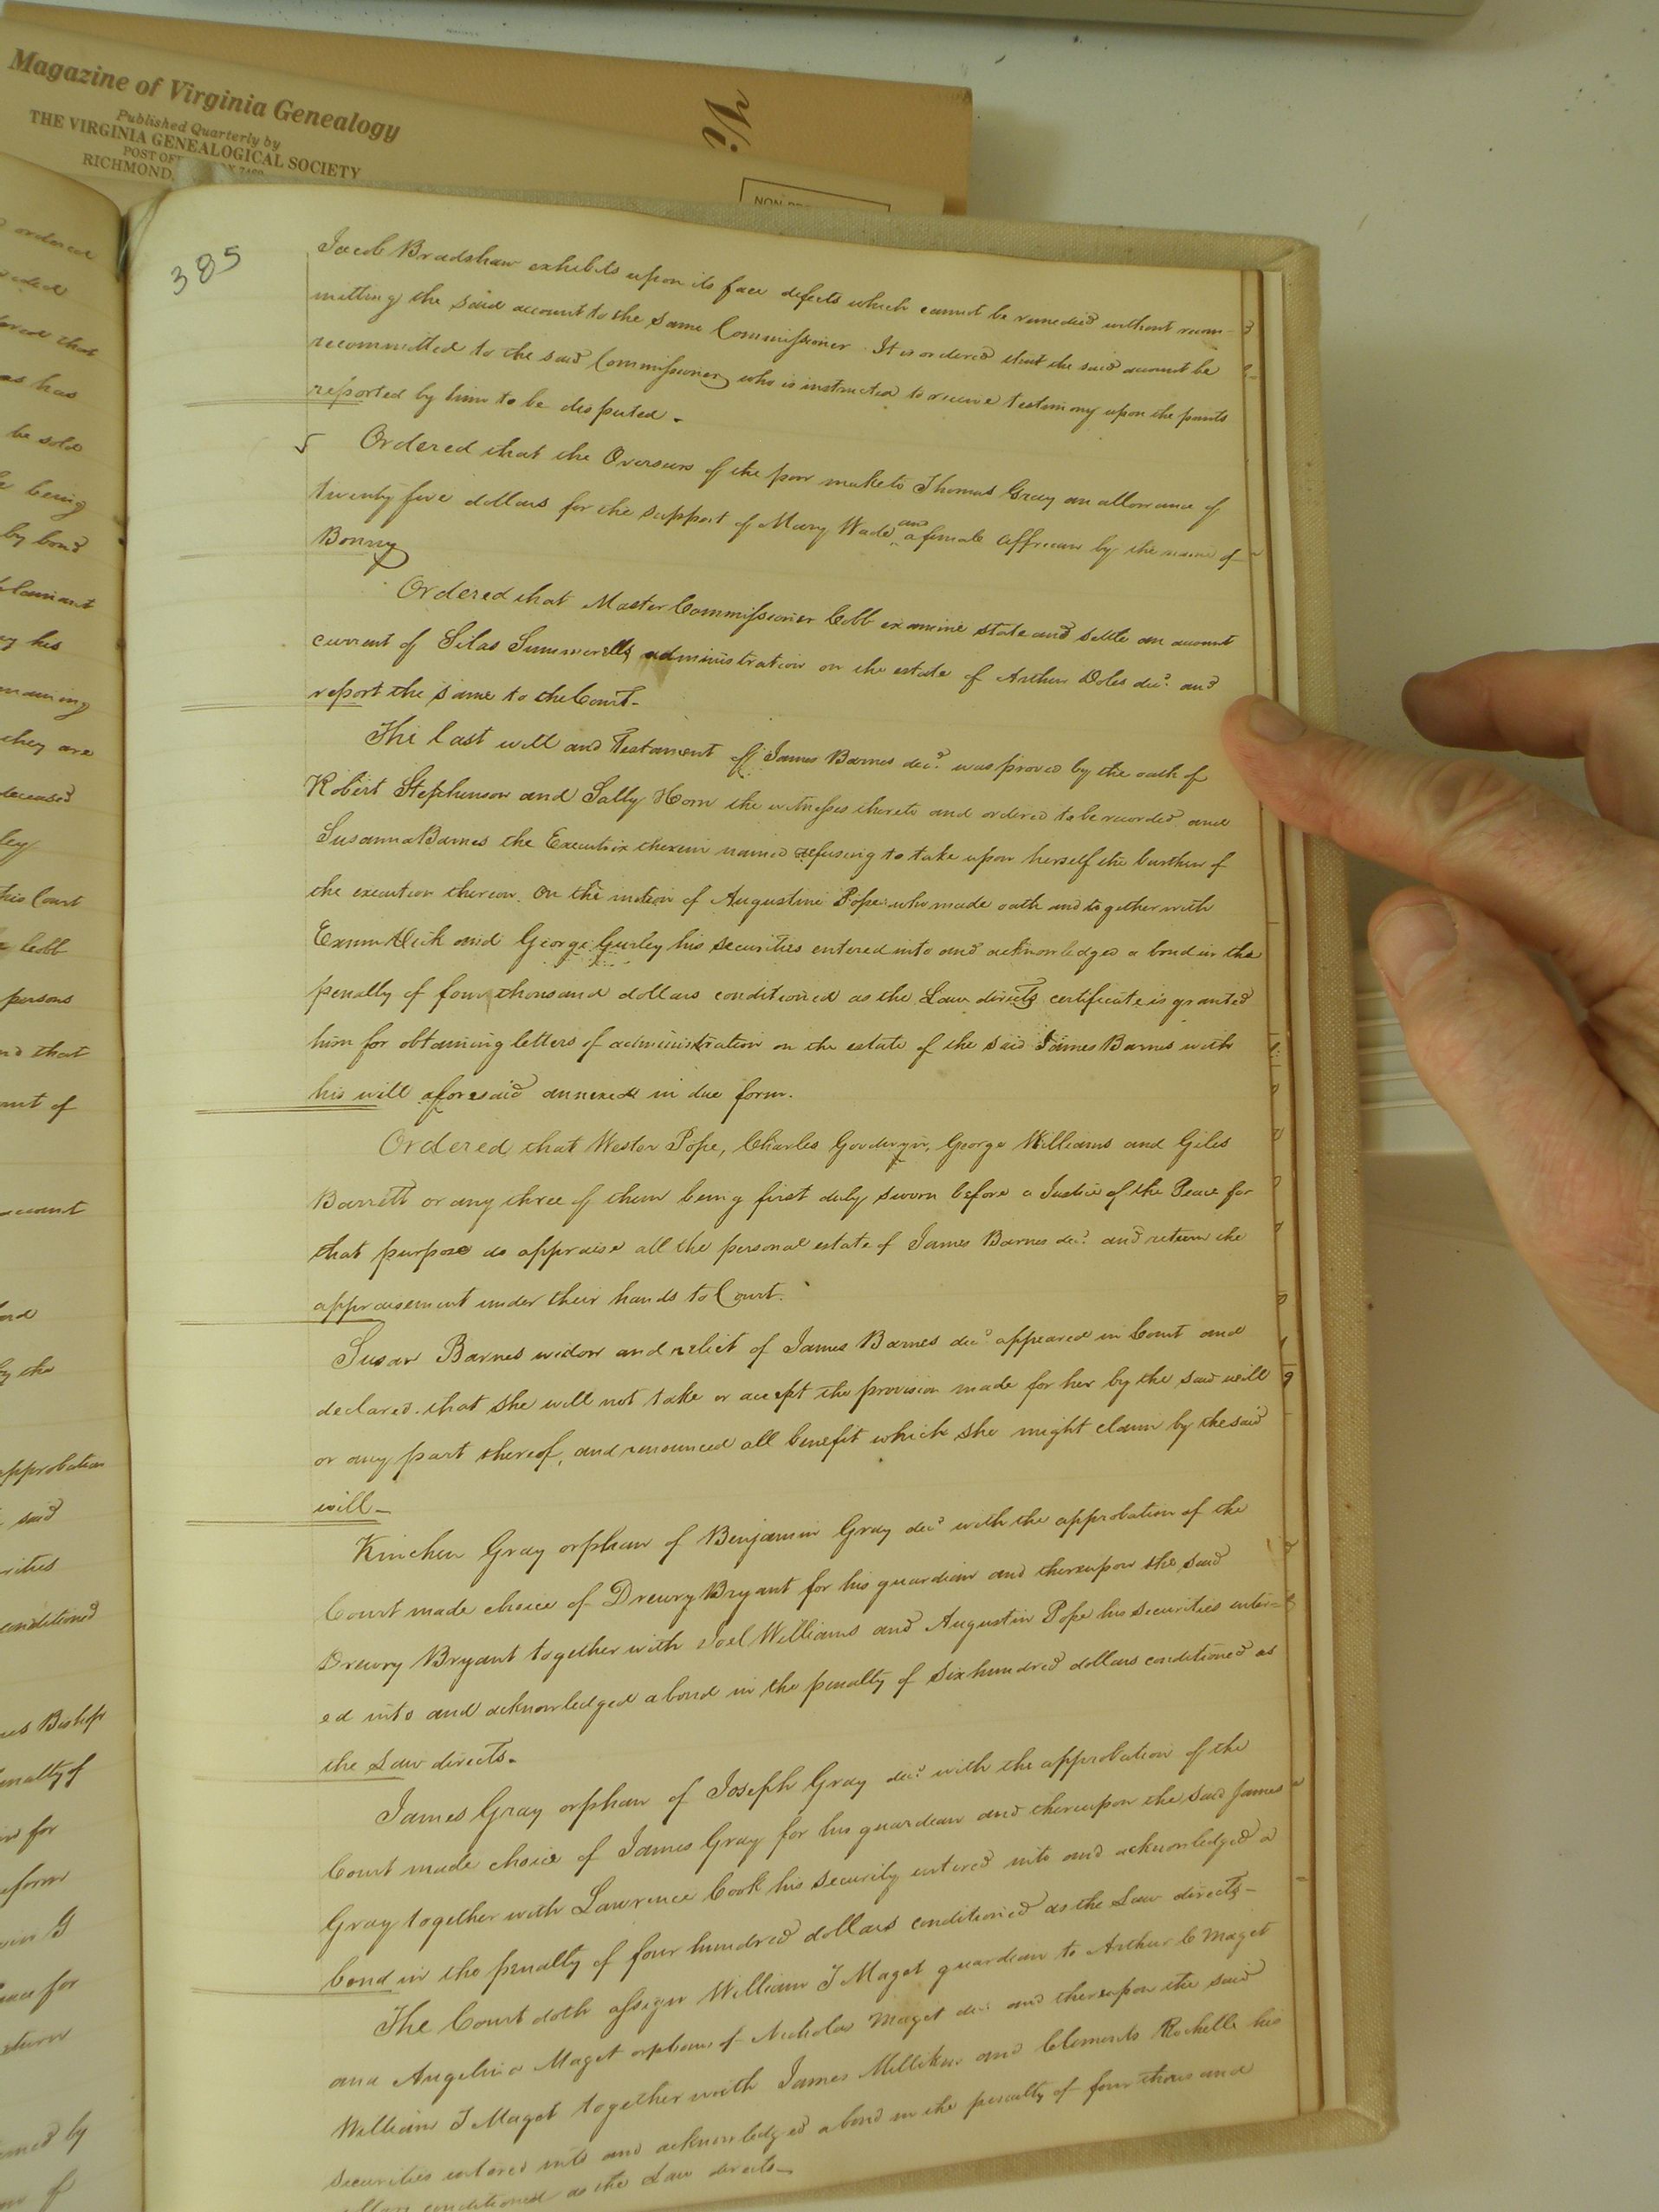 Magazine of Virginia Genealogy
Published Quarterly by
THE VIRGINIA GENEALOGICAL SOCIETY
POST OF
RICHMOND,
385
Jacob Bradshaw exhibits upon its face defects which cannot be remedied without recom-
mitting the said account to the same Commissioner. It is ordered that the said account be
recommitted to the said Commissioner who is instructed to receive testimony upon the points
reported by him to be disputed.
Ordered that the Overseers of the poor make to Thomas Gray an allowance of
twenty five dollars for the support of Mary Wade and a female Affrican by the name of
Bonny
Ordered that Master Commissioner Cobb examine state and settle an account
current of Silas Summerells administration on the estate of Arthur Doles decd. and
report the same to the Court.
The last will and Testament of James Barnes decd. was proved by the oath of
Robert Stephenson and Sally Horn the witnesses thereto and ordered to be recorded and
Susanna Barnes the Executrix therein named refusing to take upon herself the burthen of
the execution thereon. On the motion of Augustine Pope who made oath and together with
Exum Kick and George Gurley his securities entered into and acknowledged a bond in the
penalty of four thousand dollars conditioned as the Law directs certificate is granted
him for obtaining letters of administration on the estate of the said James Barnes with
his will aforesaid annexed in due form.
Ordered that Weston Pope, Charles Goodwyn, George Williams and Giles
Barrett or any three of them being first duly sworn before a Justice of the Peace for
that purpose do appraise all the personal estate of James Barnes decd. and return the
appraisement under their hands to Court.
Susan Barnes widow and relict of James Barnes decd. appeared in Court and
declared that she will not take or accept the provision made for her by the said will
or any part thereof, and renounced all benefit which she might claim by the said
will
Kinchen Gray orphan of Benjamin Gray decd with the approbation of the
Court made choice of Drewry Bryant for his guardian and thereupon the said
Drewry Bryant together with Joel Williams and Augustin Pope his securities enter-
ed into and acknowledged a bond in the penalty of Six hundred dollars conditioned as
the Law directs.
James Gray orphan of Joseph Gray decd. with the approbation of the
Court made choice of James Gray for his guardian and thereupon the said James
Gray together with Lawrence Cook his security entered into and acknowledged a
bond in the penalty of four hundred dollars conditioned as the Law directs
The Court doth assign William J Maget guardian to Arthur C Maget
and Angelina Maget orphans of Nicholas Maget decd. and thereupon the said
William J Maget together with James Milliken and Clements Rochelle his
securities entered into and acknowledged a bond in the penalty of four thousand
conditioned as the Law directs